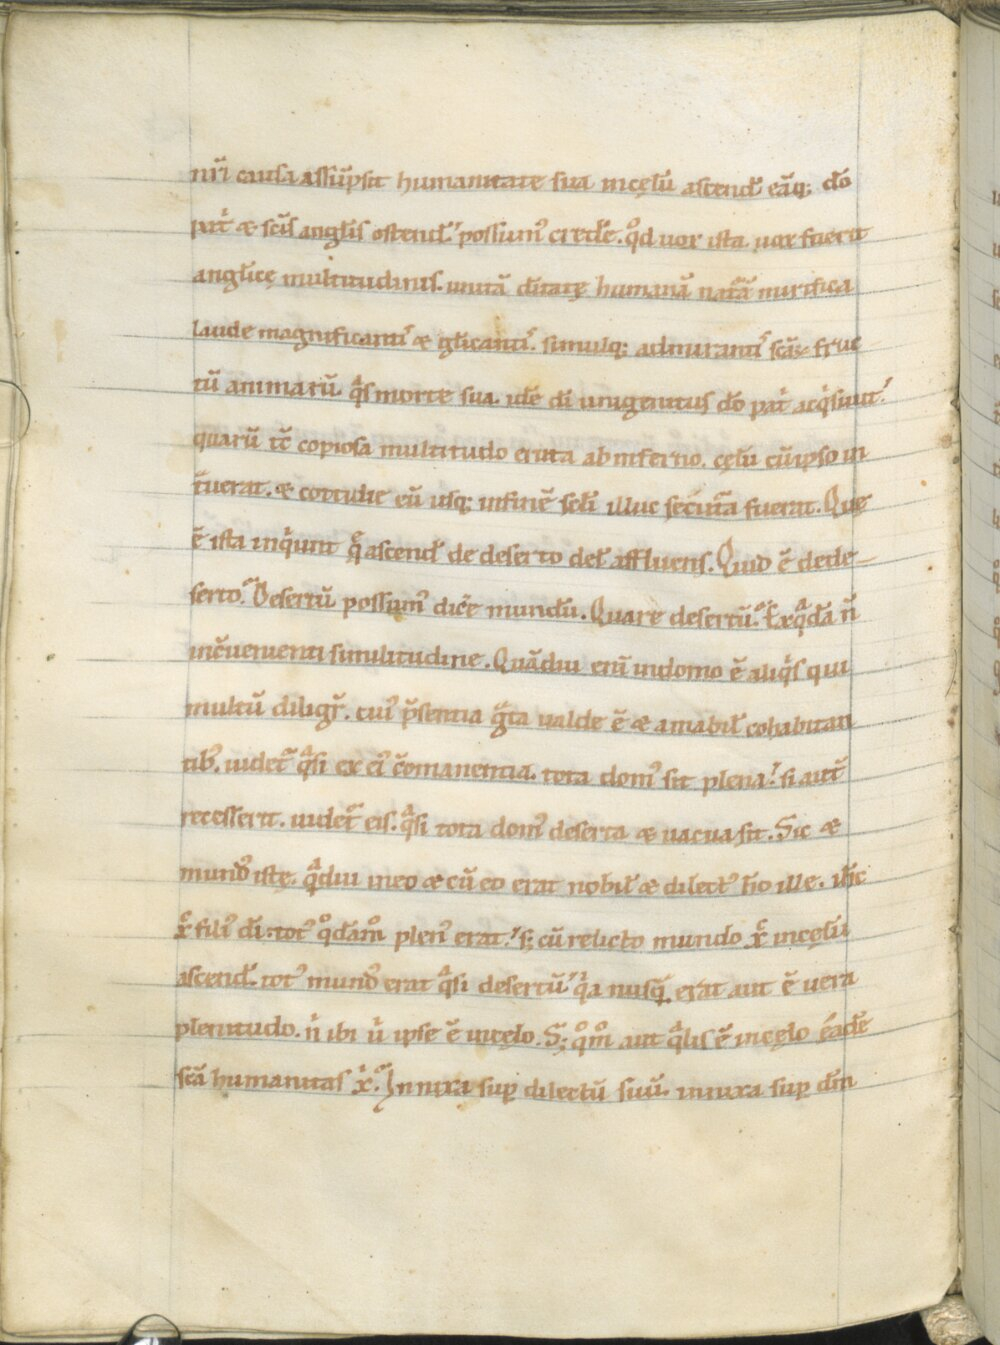 nr̄i causa assūpsit humanitatē sua incęlū ascend̄. eāq; dō
pat̄ & sc̄is angl̄is ostend̄. possum᷒ credere. qd̄ uox ista uox fuerit
angl̄icę multitudinis. unitā d̄itatę humanā nat̄ā mirifica
laude magnificanti᷒ & gl̄icanti᷒. simulq; admiranti᷒ sc̄ā fruc
tū animarū q̄s morte sua idē dī unigenitus dō pat̄ acq̄siuit.
quarū tc̄ copiosa multitudo eruta ab inferno. cęlū cū ipso in
t̄uerat. & cottidie eū usq; infinē scl̄i illuc secut̄a fuerat. Quę
ē ista inq̄unt q̄ ascend̄ de deserto del̄ affluens. Quid ē dede-
serto. Desertū possum᷒ dic̄e mundū. Quare desertū. Ex q̄dā n̄
incōuenienti similitudine. Quādiu enī indomo ē aliq̄s qui
multū diligit̄. cui᷒ p̄sentia ḡta ualde ē & amabil̄ cohabitan
tib᷒. uidet̄ q̄si ex ei᷒ c̄omanentia. tota dom᷒ sit plena. si aut̄
recesserit. uidet̄ eis. q̄si tota dom᷒ deserta & uacua sit. Sic &
mund᷒ iste. q̄diu in eo & cū eo erat nobil̄ & dilect᷒ hō ille. ih̄c
xp̄c fili᷒ dī. tot᷒ qd̄āmō plen᷒ erat. s; cū relicto mundo xp̄c incęlū
ascend̄. tot᷒ mund᷒ erat q̄si desertū. q̄a nusq̄ erat aut ē uera
plenitudo. n̄ ibi ū ipse ē incęlo. S; qōmō aut q̄lis ē incęlo eadē
sc̄ā humanitas xp̄i. Innixa sup̄ dilectū suū. innixa sup̄ dn̄m